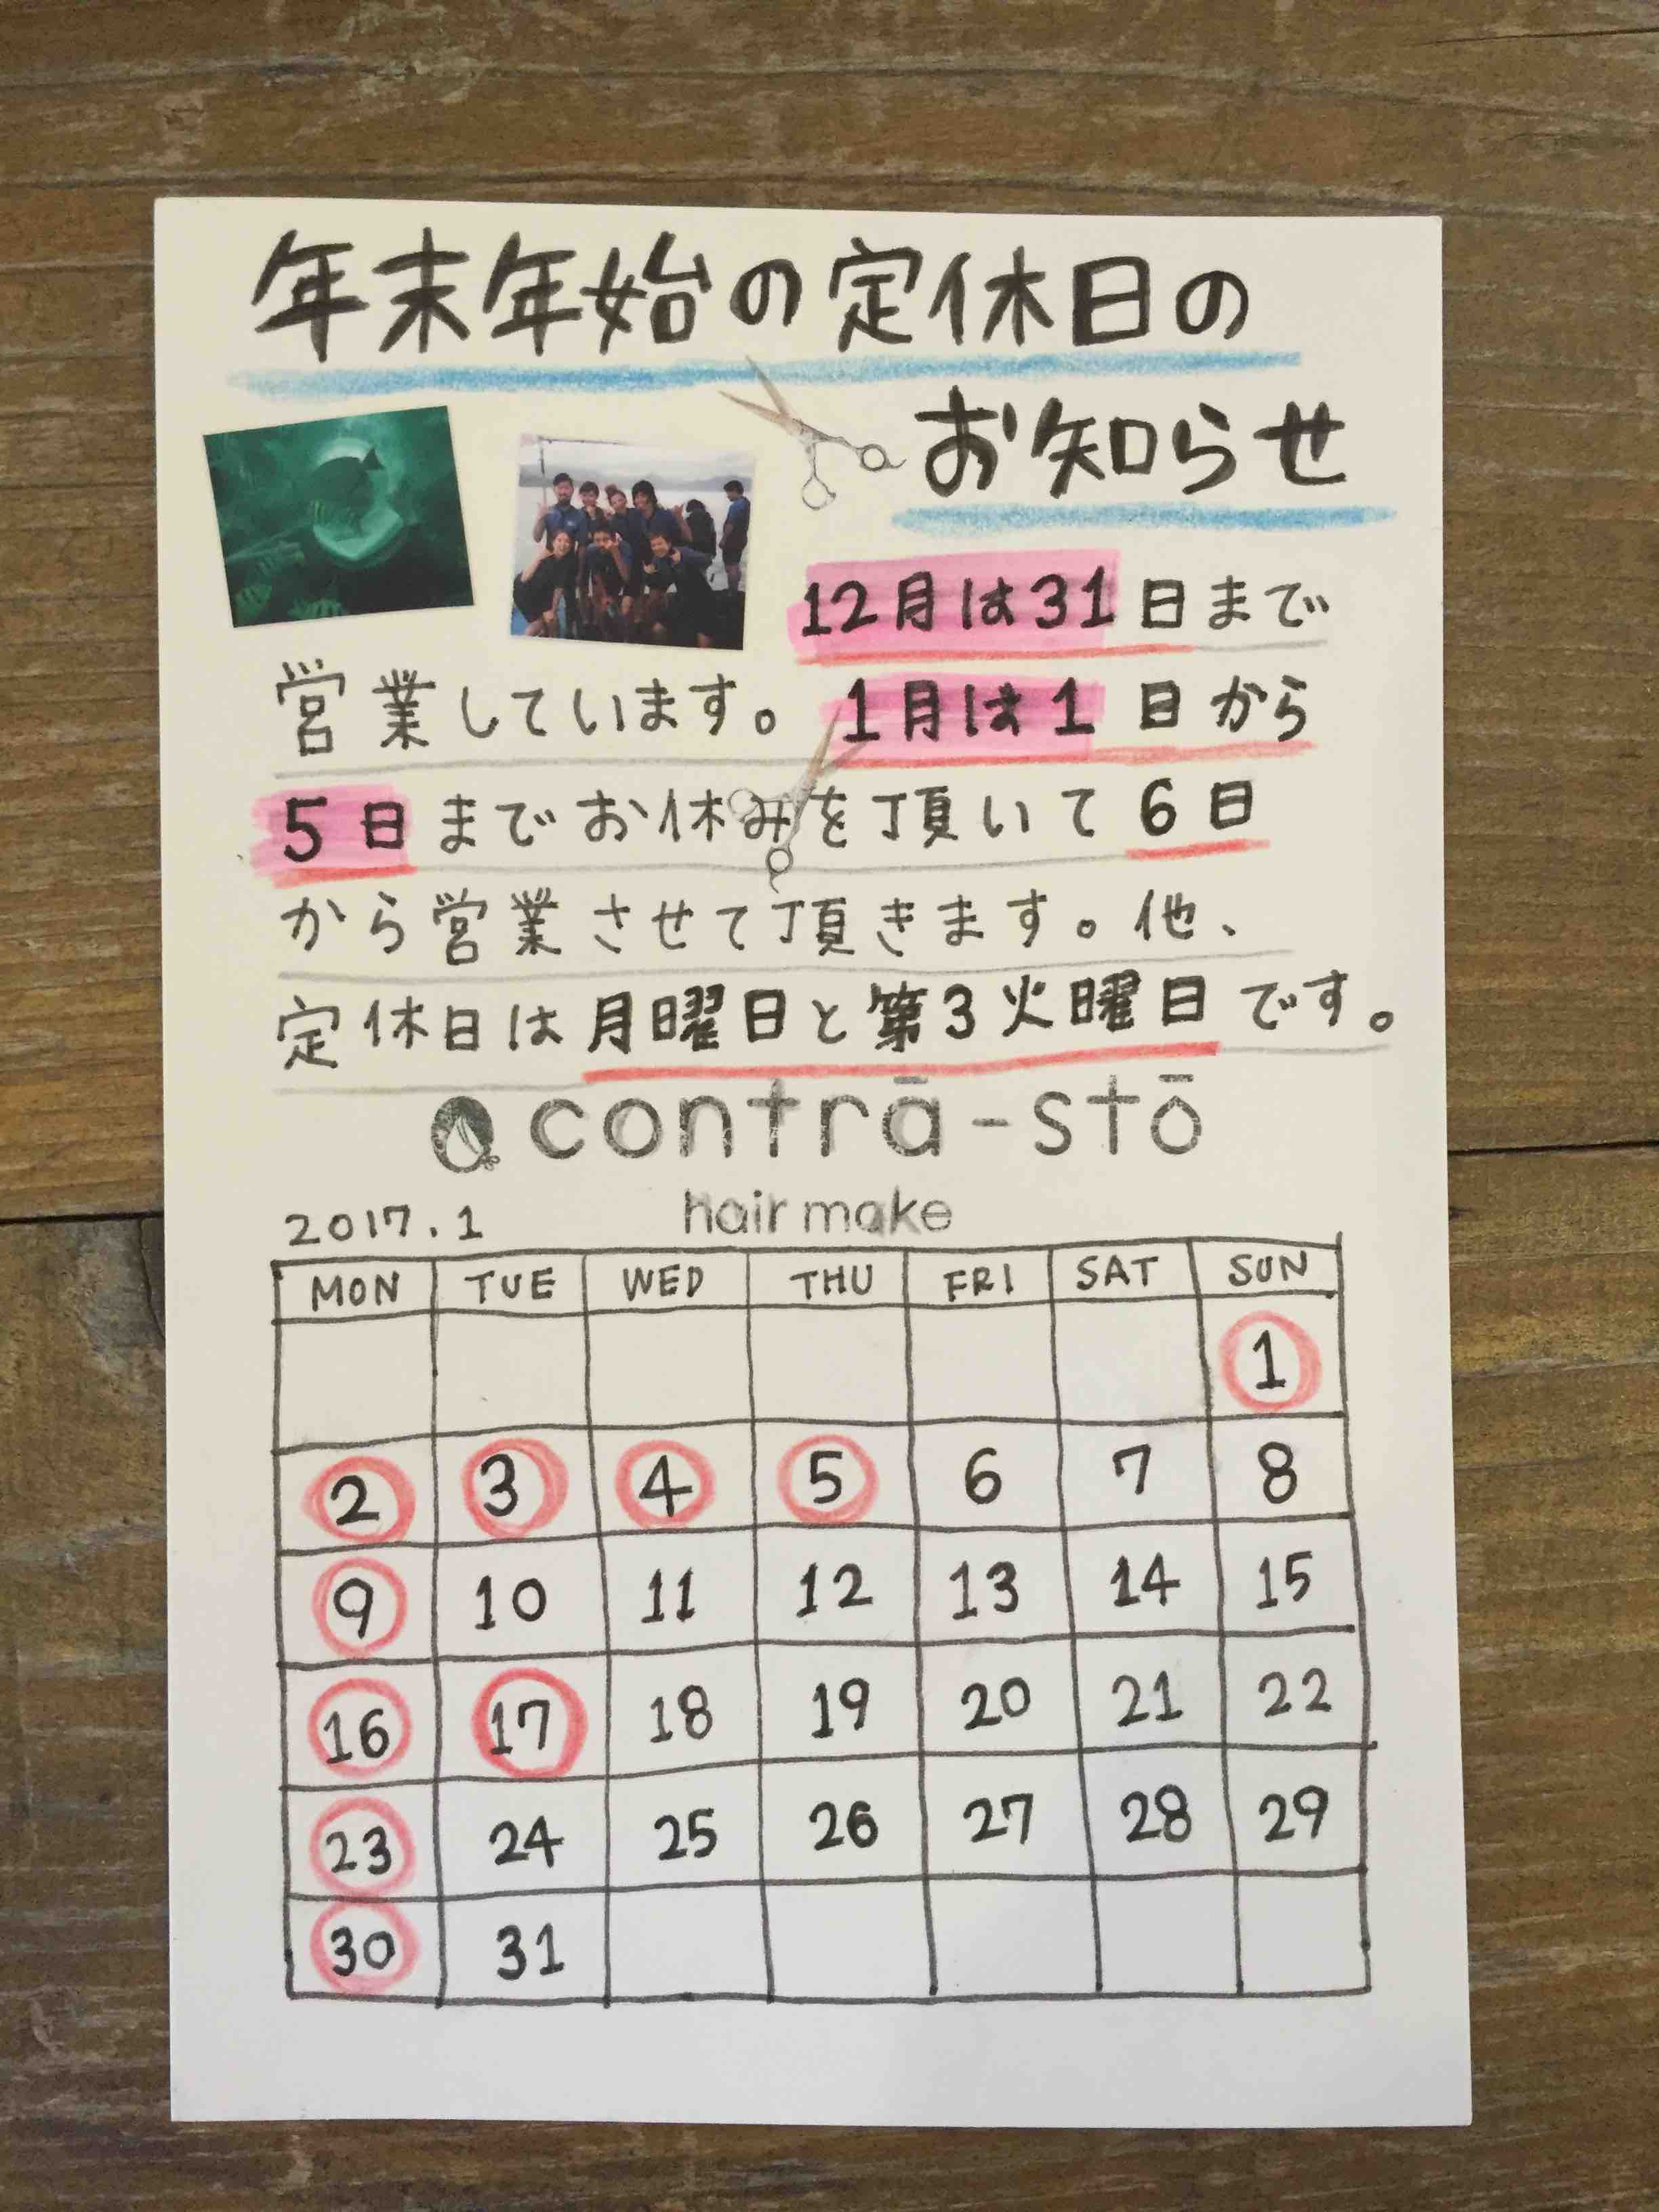 年末年始の定休日の
お知らせ
12月は31日まで
営業しています。1月は1日から
5日までお休みを頂いて6日
から営業させて頂きます。他、
定休日は月曜日と第3火曜日です。
contrā-stō
hair make
2017.1
MON TUE WED THU FRI SAT SUN
1
2 3 4 5 6 7 8
9 10 11 12 13 14 15
16 17 18 19 20 21 22
23 24 25 26 27 28 29
30 31